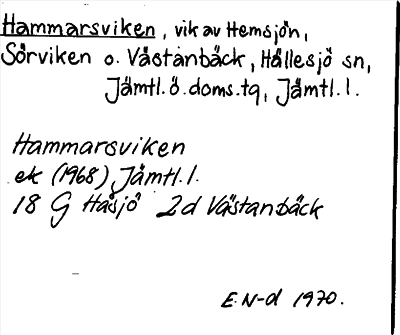 Hammarsviken, vik av Hemsjön,
Sörviken o. Västanbäck, Hällesjö sn,
Jämtl.ö.doms.tq, Jämtl.l.
Hammarsviken
ek (1968) Jämtl.l.
18 G Håsjö 2d Västanbäck
E.N-d 1970.